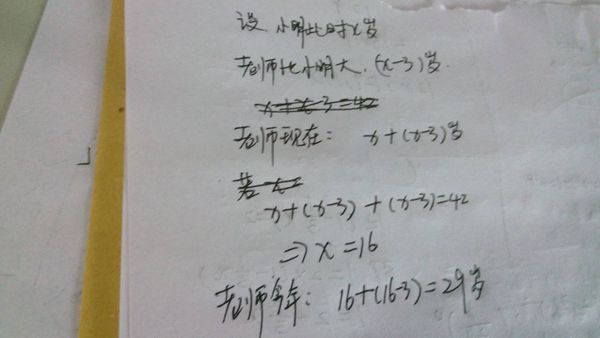 设 小明此时x岁
老师比小明大 (x-3)岁.
x+x-3=42
老师现在: x+(x-3)岁
若 x=
x+(x-3)+(x-3)=42
⇒x=16
老师今年: 16+(16-3)=29岁